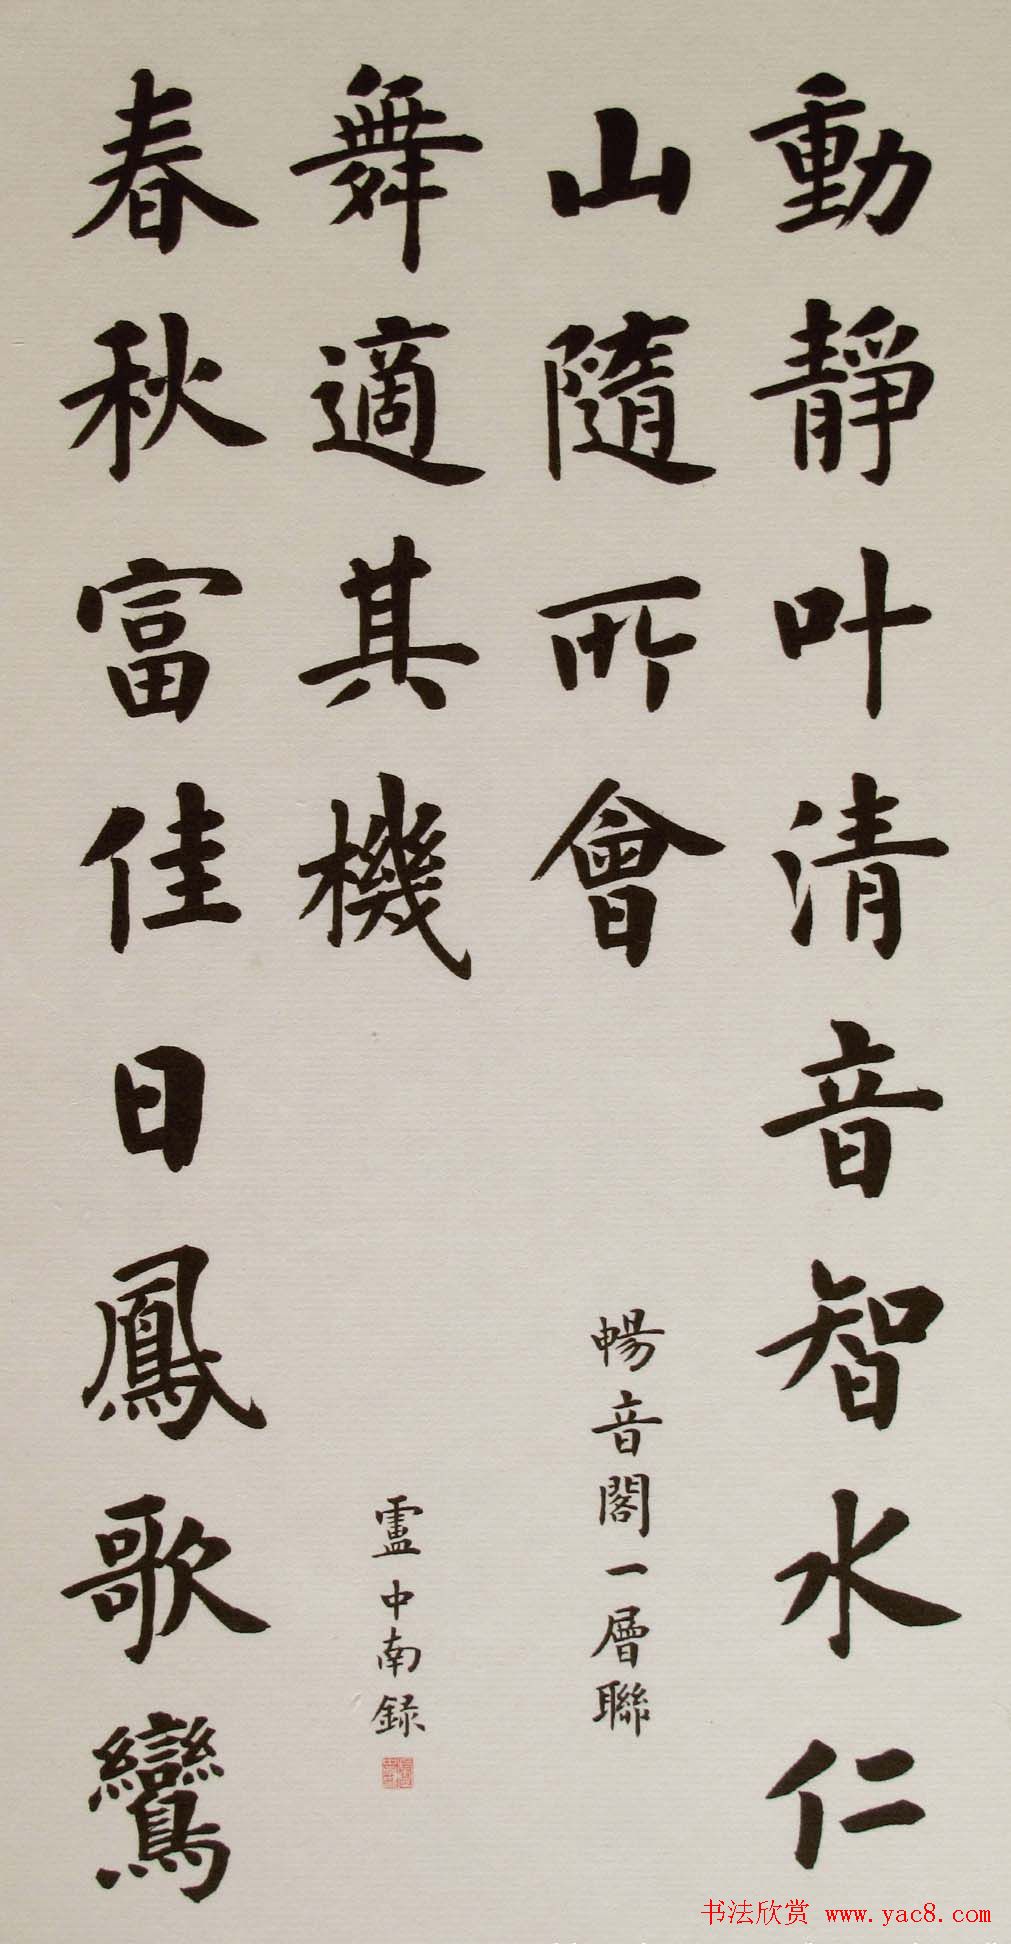 動靜叶清音智水仁
山隨所會
暢音閣一層聯
春秋富佳日鳳歌鸞
舞適其機
盧中南録
书法欣赏 www.yac8.com